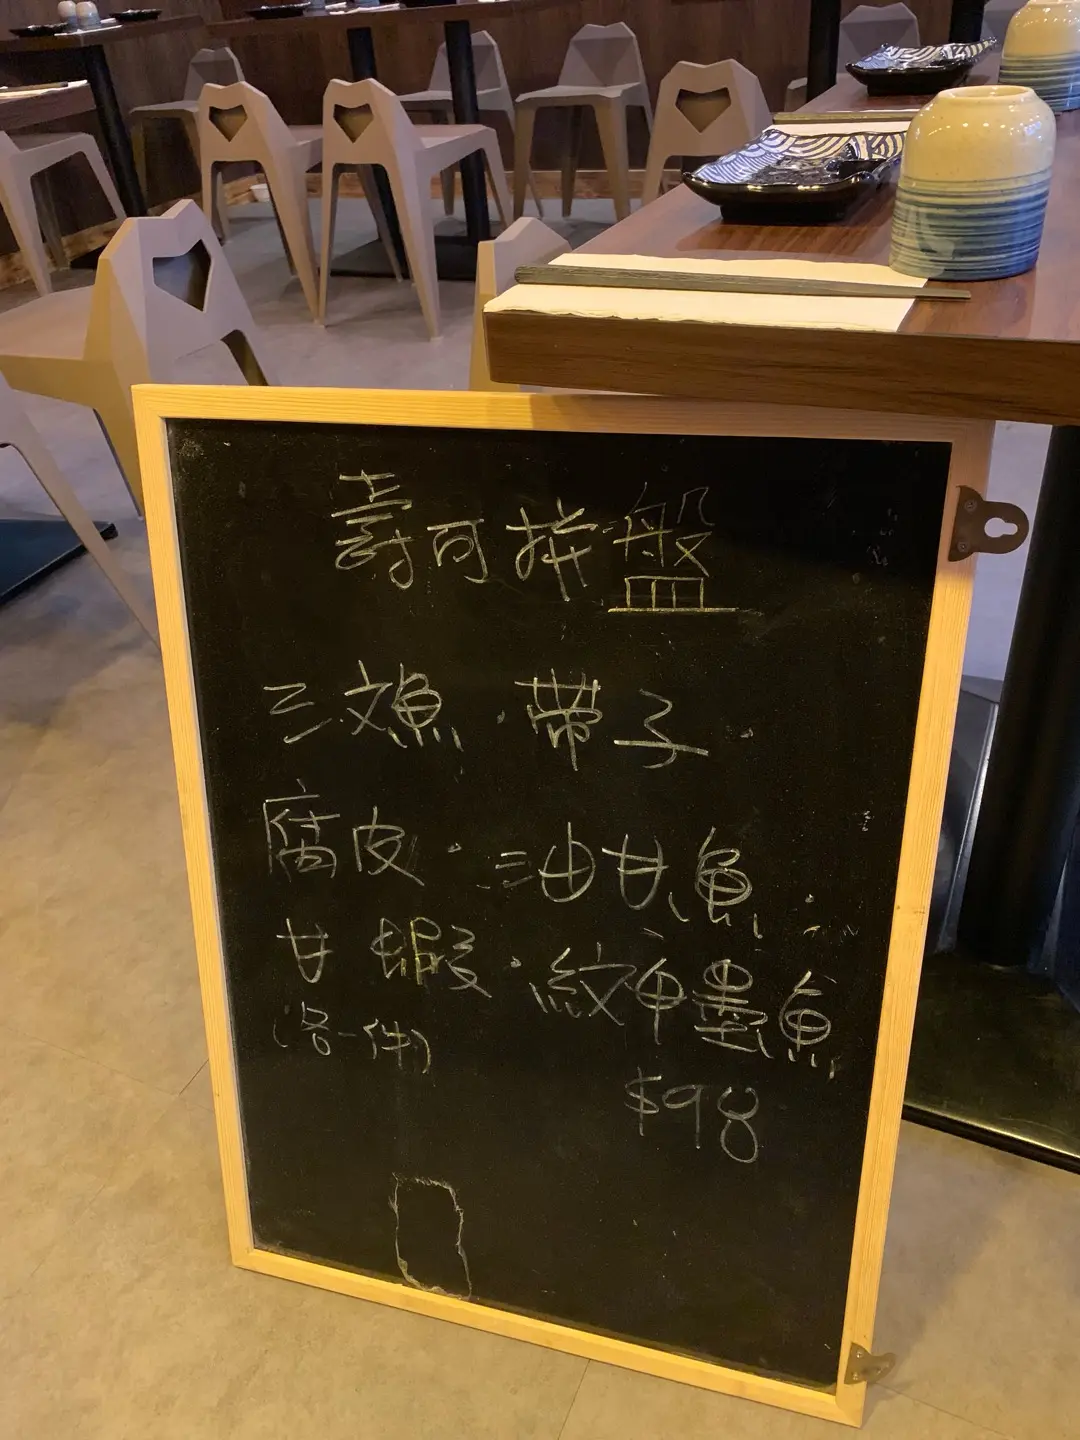 壽司拼盤
三文魚·帶子·
腐皮·油甘魚·
甘蝦·紋甲墨魚
(各一件)
$98